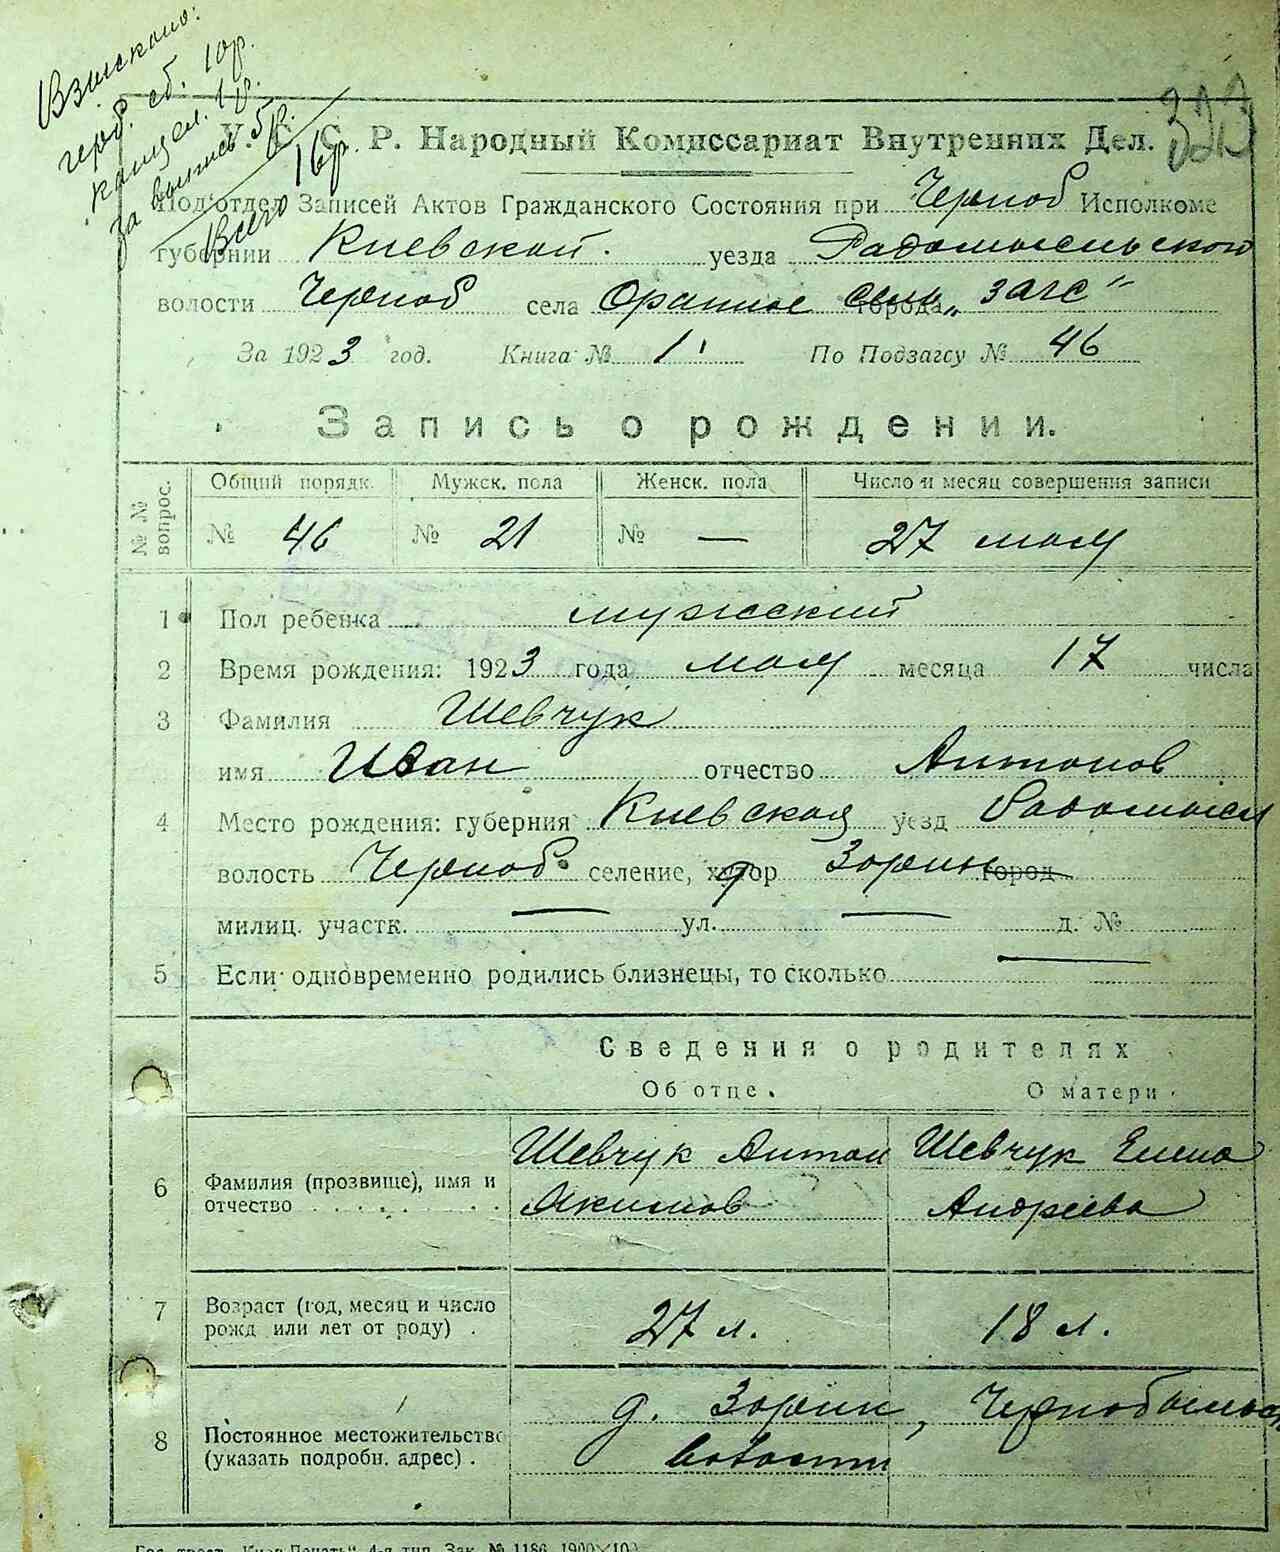 Взыскано:
герб. сб. 10р.
канцел. 1р.
за выпись 5р.
Всего 16р.
323
У. С. С. Р. Народный Комиссариат Внутренних Дел.
Под'отдел Записей Актов Гражданского Состояния при Черноб Исполкоме
губернии Киевской. уезда Радомысльского
волости Черноб села Оранное города „ЗАГС"
За 1923 год. Книга № 1 По Подзагсу № 46
Запись о рождении.
№ № вопрос. Общий порядк. Мужск. пола Женск. пола Число и месяц совершения записи
№ 46 № 21 № — 27 мая
1 Пол ребенка мужеский
2 Время рождения: 1923 года мая месяца 17 числа
3 Фамилия Шевчук
имя Иван отчество Антонов
4 Место рождения: губерния Киевская уезд Радомысл
волость Черноб. селение, хутор д Зорин город
милиц. участк. — ул. — д. №
5 Если одновременно родились близнецы, то сколько —
Сведения о родителях
Об отце. О матери.
6 Фамилия (прозвище), имя и отчество Шевчук Антон Шевчук Елена
Акимов Андреева
7 Возраст (год, месяц и число рожд или лет от роду) . 27 л. 18 л.
8 Постоянное местожительство (указать подробн. адрес) . д. Зорин, Чернобыльской
волости
Гос. трест „Киев-Печать“ 4-я тип. Зак. № 1186. 1900×10